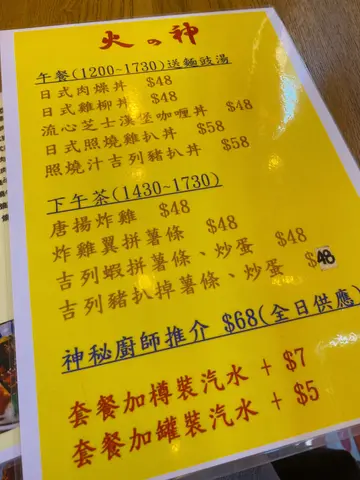 火の神
午餐(1200~1730)送麵豉湯
日式肉燥丼 $48
日式雞柳丼 $48
流心芝士漢堡咖喱丼 $48
日式照燒雞扒丼 $58
照燒汁吉列豬扒丼 $58
下午茶(1430~1730)
唐揚炸雞 $48
炸雞翼拼薯條 $48
吉列蝦拼薯條、炒蛋 $48
吉列豬扒掉薯條、炒蛋 $48
神秘廚師推介 $68(全日供應)
套餐加樽裝汽水 + $7
套餐加罐裝汽水 + $5